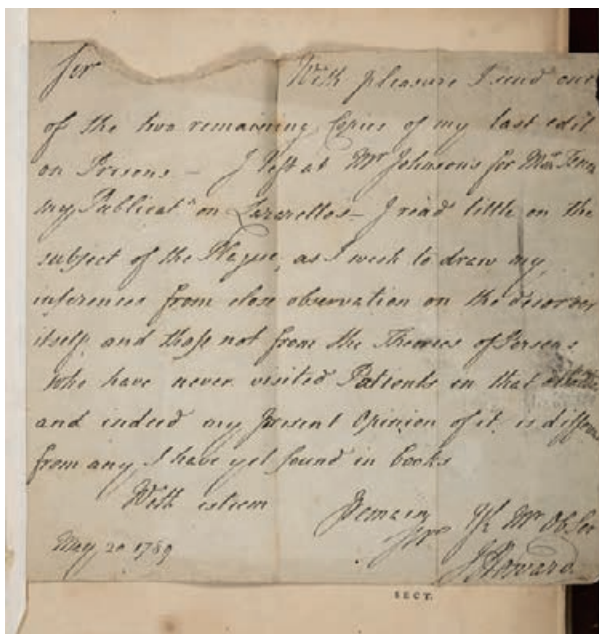 Sir
With pleasure I send one
of the two remaining Copies of my last edit
on Prisons – I left at Mr Johnson's for Mr
my Publicatn on Lazarettos – I read little on the
subject of the Plague, as I wish to draw my
inferences from close observation on the disorder
itself and those not from the Theories of Persons
who have never visited Patients in that
and indeed my present Opinion of it is differ
from any I have yet found in books
With esteem
I remain
Sir Yr Mt Ob Ser
May 20 1789
J Howard
SECT.